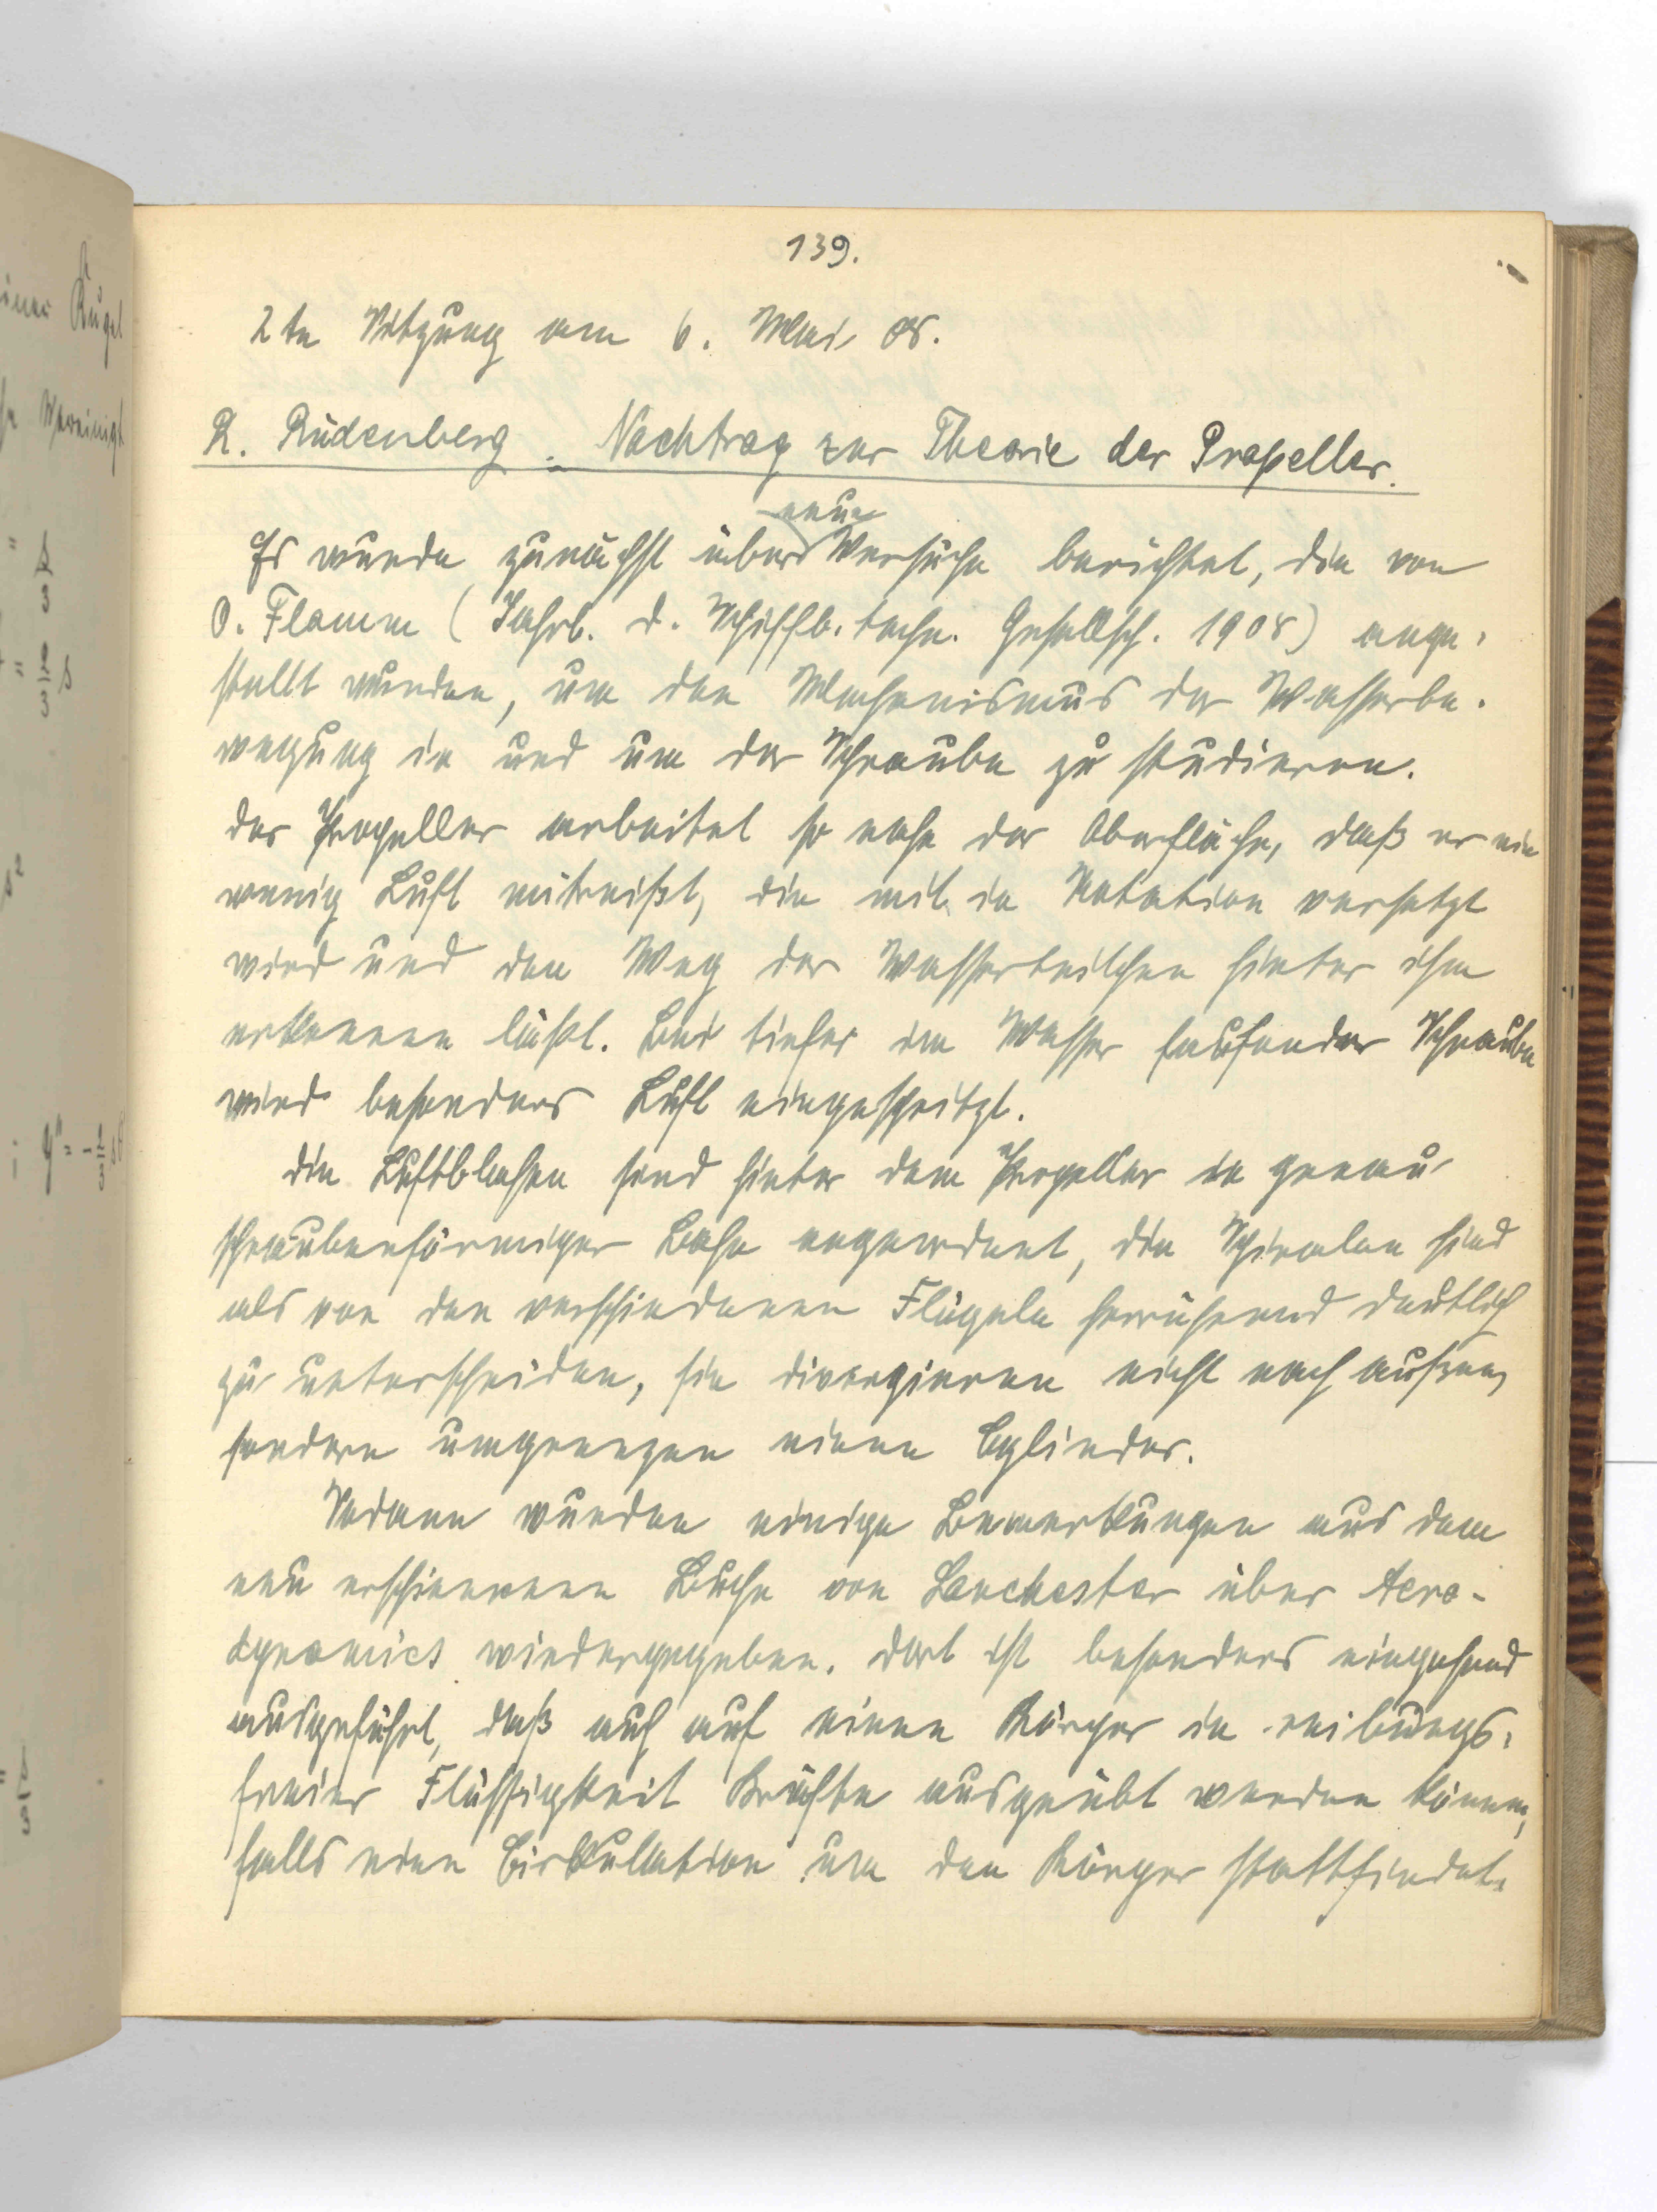 139.
2te Sitzung am 6. Mai 08.
R. Rüdenberg. Nachtrag zur Theorie der Propeller.
neue
Es wurde zunächst über Versuche berichtet, die von
O. Flamm (Jahrb. d. Schiffb. techn. Gesellsch. 1908) ange-
stellt wurden, um den Mechanismus der Wasserbe-
wegung in und um der Schraube zu studieren.
Der Propeller arbeitet so nahe der Oberfläche, daß er ein
wenig Luft mitreißt, die mit in Rotation versetzt
wird und den Weg der Wasserteilchen hinter ihm
erkennen läßt. Bei tiefer im Wasser laufender Schraube
wird besonders Luft eingespritzt.
Die Luftblasen sind hinter dem Propeller in genau
schraubenförmiger Bahn angeordnet, die Spiralen sind
als von den verschiedenen Flügeln herrührend deutlich
zu unterscheiden, sie divergieren nicht nach außen,
sondern umgrenzen einen Cylinder.
Sodann wurden einige Bemerkungen aus dem
neu erschienenen Buche von Lanchester über Aero-
dynamics wiedergegeben. Dort ist besonders eingehend
ausgeführt, daß auch auf einen Körper in reibungs-
freier Flüssigkeit Kräfte ausgeübt werden können,
falls eine Cirkulation um den Körper stattfindet.
einer Kugel
Vereinigt